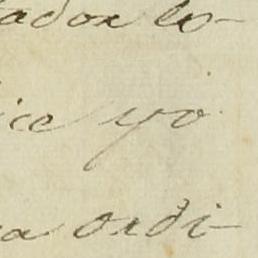 ador lo-
ice yo
a ordi-